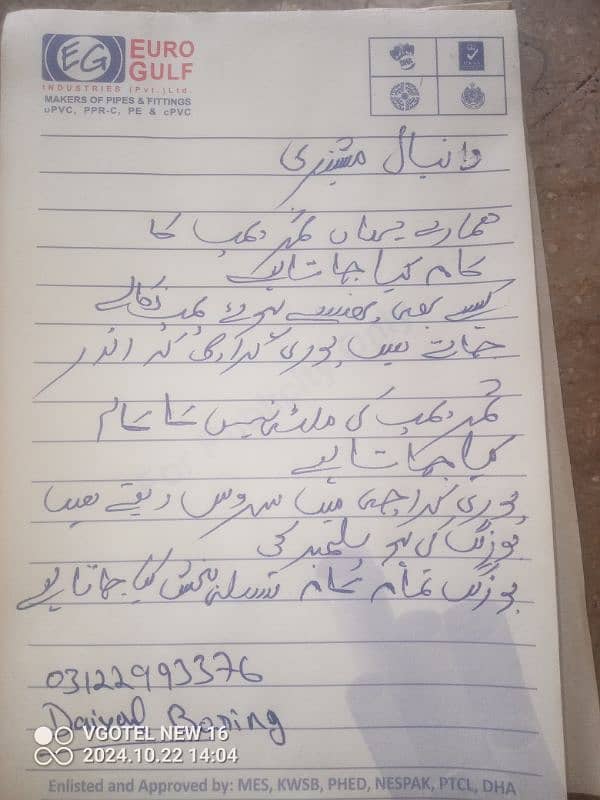 EG
EURO
GULF
INDUSTRIES (Pvt.) Ltd.
MAKERS OF PIPES & FITTINGS
uPVC, PPR-C, PE & cPVC
دانیال مشینری
ہمارے یہاں کا
کام کیا جاتا ہے
کیسے بھی پھنسے ہوئے پمپ نکالے
جاتے ہیں پوری کراچی کے اندر
کی کام
کیا جاتا ہے
پوری کراچی میں سروس دیتے ہیں
بورنگ کی ہو پلمبر کی
بورنگ تمام کام تسلی بخش کیا جاتا ہے
03122993376
Boring
VGOTEL NEW 16
2024.10.22 14:04
Enlisted and Approved by: MES, KWSB, PHED, NESPAK, PTCL, DHA